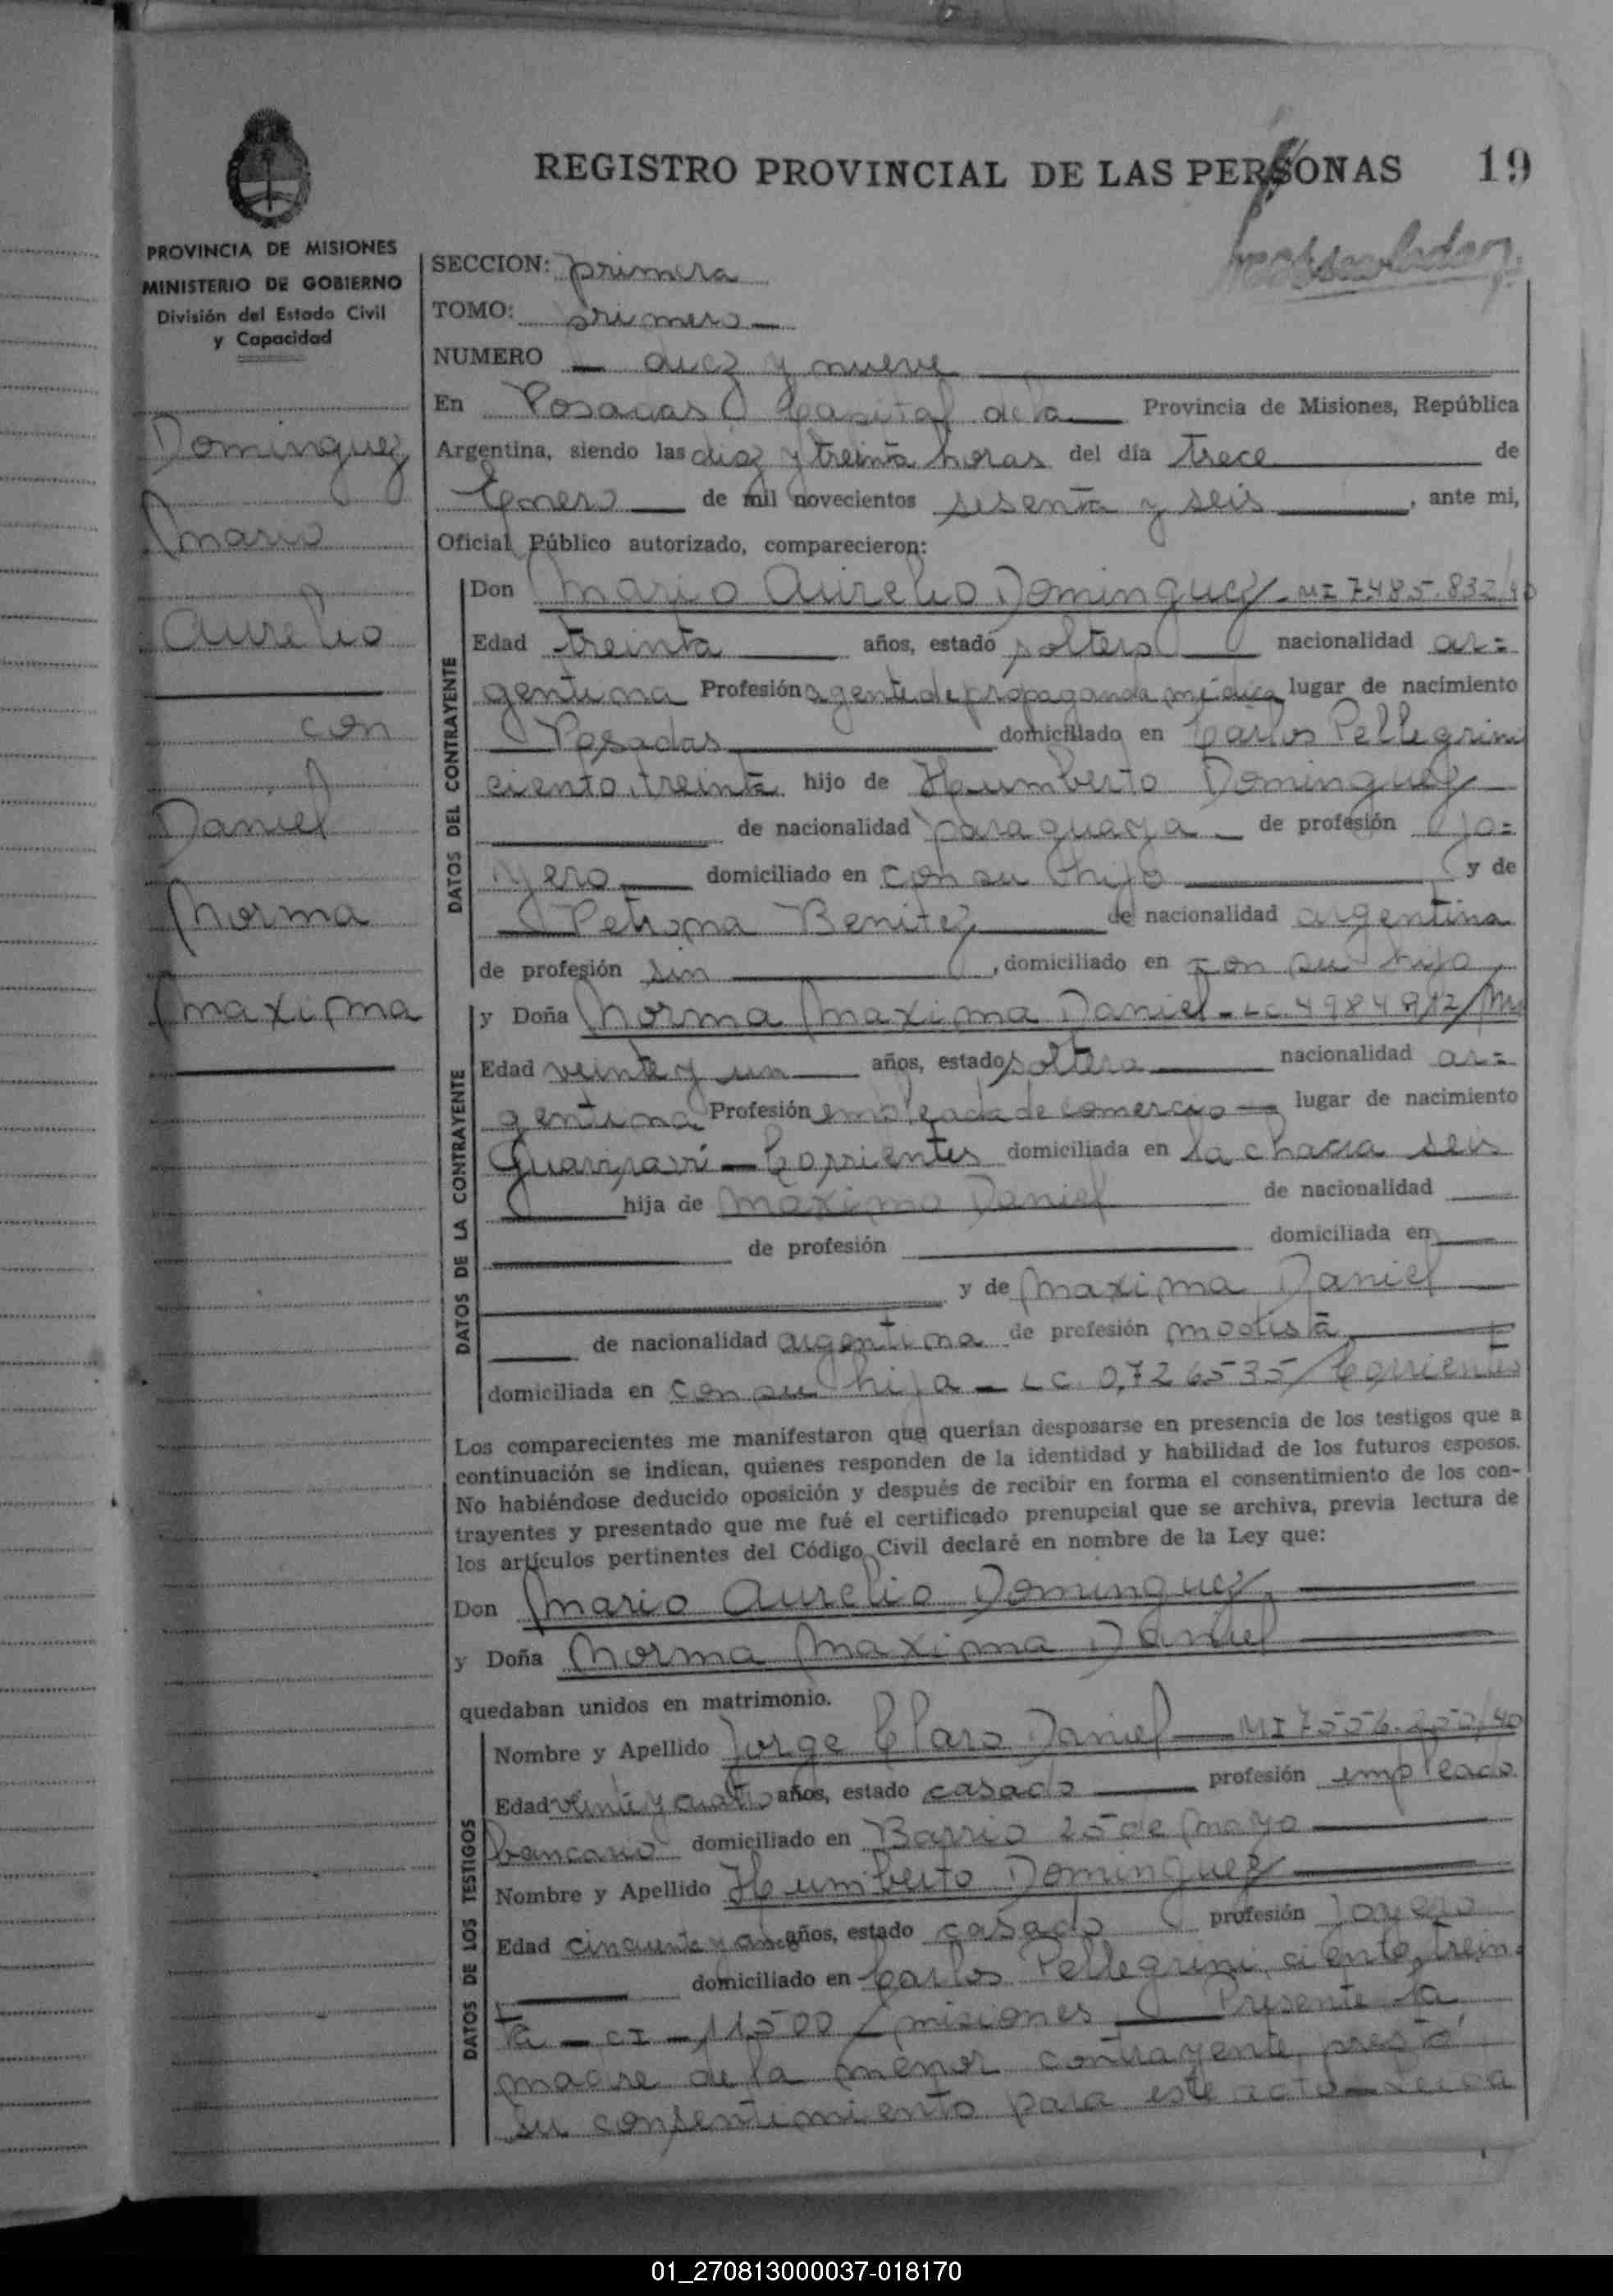 REGISTRO PROVINCIAL DE LAS PERSONAS 19
PROVINCIA DE MISIONES
MINISTERIO DE GOBIERNO
División del Estado Civil
y Capacidad
Dominguez
Mario
Aurelio
con
Daniel
Norma
Maxima
SECCION: primera
TOMO: primero
NUMERO diez y nueve
En Posadas Capital de la Provincia de Misiones, República
Argentina, siendo las diez y treinta horas del día trece de
Enero de mil novecientos sesenta y seis, ante mi,
Oficial Público autorizado, comparecieron:
DATOS DEL CONTRAYENTE
Don Mario Aurelio Dominguez - MI 7.485.832/40
Edad treinta años, estado soltero nacionalidad ar=
gentina Profesión agente de propaganda médica lugar de nacimiento
Posadas domiciliado en Carlos Pellegrini
ciento treinta hijo de Humberto Dominguez
de nacionalidad paraguaya de profesión jo=
yero domiciliado en con su hijo y de
Petrona Benitez de nacionalidad argentina
de profesión sin, domiciliado en con su hijo
DATOS DE LA CONTRAYENTE
y Doña Norma Maxima Daniel - LC.
Edad veinte y un años, estado soltera nacionalidad ar=
gentina Profesión empleada de comercio lugar de nacimiento
Corrientes domiciliada en la chacra seis
hija de Maximo Daniel de nacionalidad
de profesión domiciliada en
y de Maxima Daniel
de nacionalidad argentina de profesión modista
domiciliada en con su hija - LC. 0,726535/Corrientes
Los comparecientes me manifestaron que querían desposarse en presencia de los testigos que a
continuación se indican, quienes responden de la identidad y habilidad de los futuros esposos.
No habiéndose deducido oposición y después de recibir en forma el consentimiento de los con-
trayentes y presentado que me fué el certificado prenupcial que se archiva, previa lectura de
los artículos pertinentes del Código Civil declaré en nombre de la Ley que:
Don Mario Aurelio Dominguez
y Doña Norma Maxima Daniel
quedaban unidos en matrimonio.
DATOS DE LOS TESTIGOS
Nombre y Apellido Jorge Claro Daniel - MI
Edad veinte y cuatro años, estado casado profesión empleado
bancario domiciliado en Barrio 25 de Mayo
Nombre y Apellido Humberto Dominguez
Edad cincuenta y años, estado casado profesión Joyero
domiciliado en Carlos Pellegrini, ciento trein=
ta - CI - 11500/Misiones Presente la
madre de la menor contrayente, prestó
su consentimiento para este acto - Leida
01_270813000037-018170